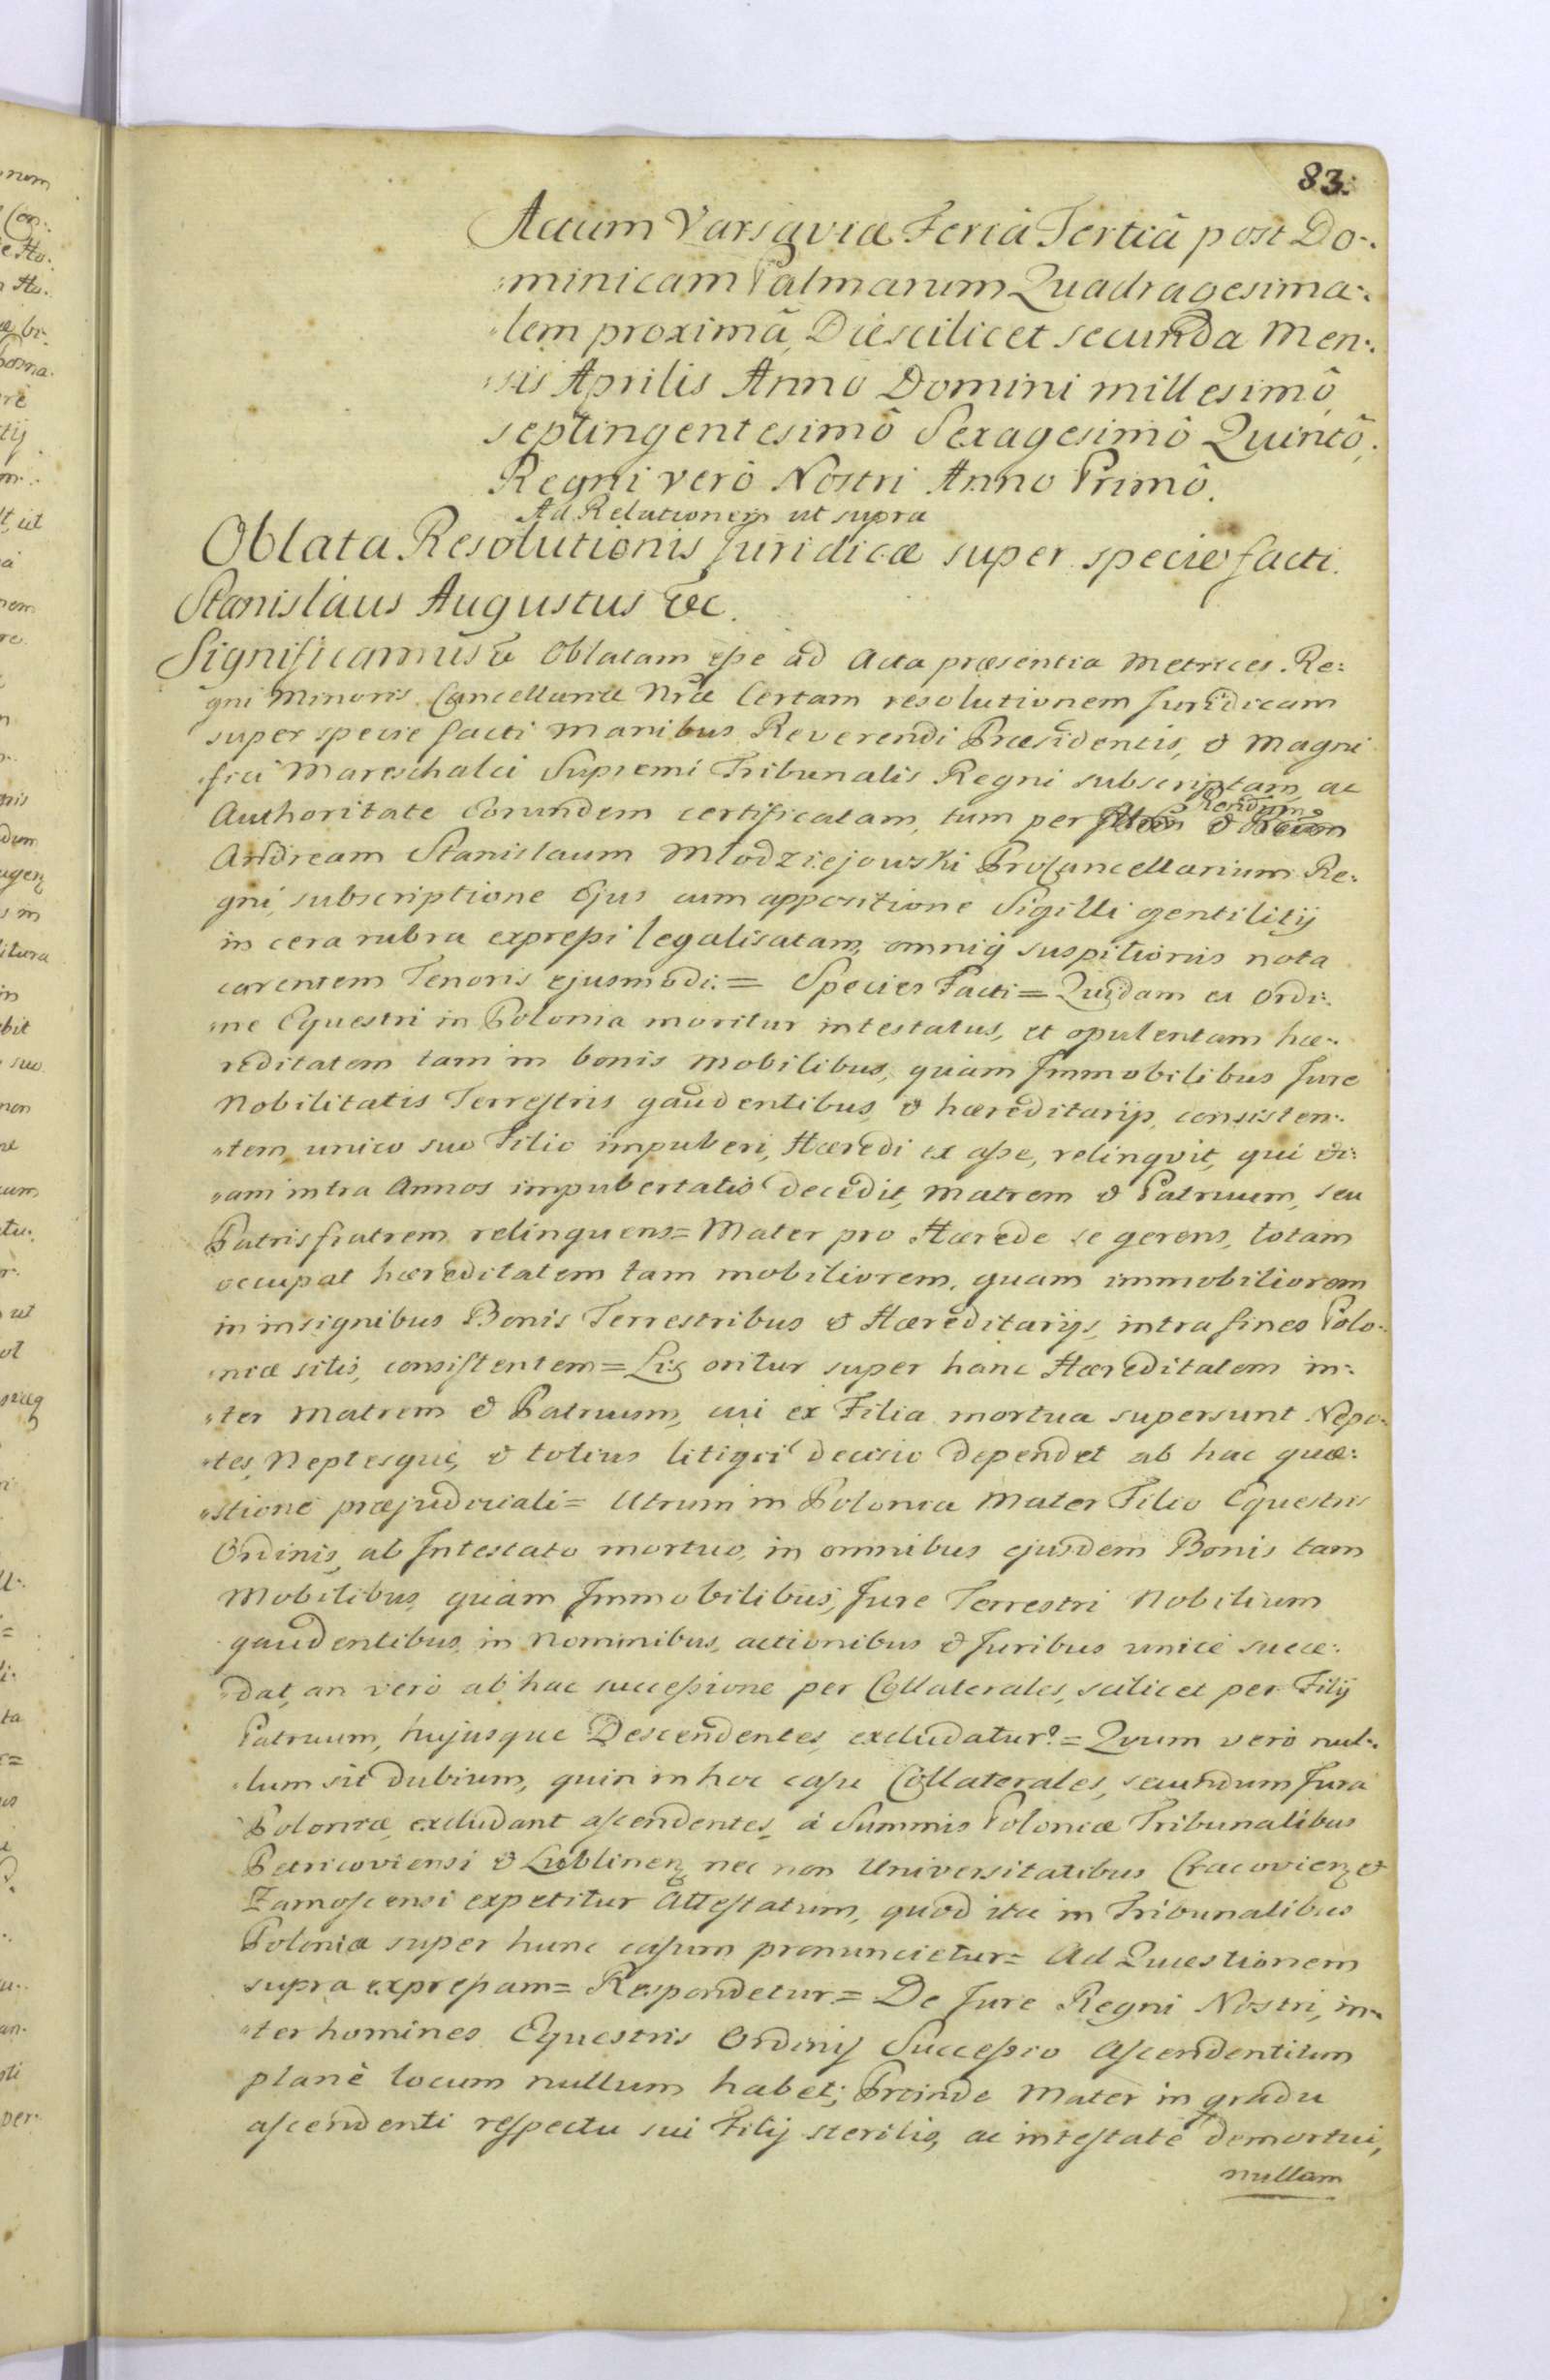 83.
Actum Varsaviæ Feriâ Tertiâ post Do-:
:minicam Palmarum Quadragesima-:
:lem proximâ, Die scilicet secunda Men-:
:sis Aprilis Anno Domini millesimô,
septingentesimô Sexagesimô Quintô,
Regni verô Nostri Anno Primô.
Ad Relationem ut supra
Oblata Resolutionis Juridicæ super specie facti.
Stanislaus Augustus &c.
Significamus &c Oblatam eſse ad Acta præsentia Metrices Re:
gni Minoris Cancellariæ Nræ Certam resolutionem Juridicam
super specie facti Manibus Reverendi Præsidentis, & Magni
:fici Mareschalci Supremi Tribunalis Regni subscriptam, ac
Rendum
Authoritate Eorundem certificatam, tum per
Andream Stanislaum Mlodziejowski ProCancellarium Re:
gni, subscriptione Ejus cum appositione Sigilli gentilitij
in cera rubra expreſsi legalisatam, omniq suspitionis nota
carentem Tenoris ejusmodi: = Species Facti = Quidam ex Ordi:
:ne Equestri in Polonia moritur intestatus, et opulentam hæ-:
reditatem tam in bonis Mobilibus, quàm Immobilibus Jure
Nobilitatis Terreſtris gaudentibus, & hæreditarijs, consisten:
:tem, unico suo Filio impuberi, Hæredi ex aſse, relinqvit, qui eti:
:am intra Annos impubertatis decedit, Matrem & Patruum, seu
Patris fratrem relinquens = Mater pro Hærede se gerens, totam
occupat hæreditatem tam mobiliorem, quam immobiliorem
in insignibus Bonis Terrestribus & Hæreditarijs, intra fines Polo-:
:niæ sitis, consiſtentem = Lis oritur super hanc Hæreditatem in:
:ter Matrem & Patruum, cui ex Filia mortua supersunt Nepo-:
:tes, Neptesque, & totius litigii decisio dependet ab hac quæ:
:stione præjudiciali = Utrum in Polonia Mater Filio Equestris
Ordinis, ab Intestato mortuo, in omnibus ejusdem Bonis tam
Mobilibus, quàm Immobilibus, Jure Terrestri Nobilium
gaudentibus, in Nominibus, actionibus & Juribus unicè succe:
:dat, an verò ab hac succeſsione per Collaterales, scilicet per Filij
Patruum, hujusque Descendentes, excludatur? = Qvum verò nul-:
:lum sit dubium, quin in hoc casu Collaterales, secundum Jura
Poloniæ, excludant aſcendentes, à Summis Poloniæ Tribunalibus
Petricoviensi & Lublinenz nec non Universitatibus Cracovienz &
Zamoſcensi expetitur Atteſtatum, quod ita in Tribunalibus
Poloniæ super hunc caſum pronuncietur = Ad Quæstionem
supra expreſsam = Respondetur = De Jure Regni Nostri, in-:
:ter homines Equestris Ordinis Succeſsio Aſcendentium
planè locum nullum habet; Proinde Mater in gradu
aſcendenti reſpectu sui Filij sterilis, ac inteſtatè demortui,
nullam